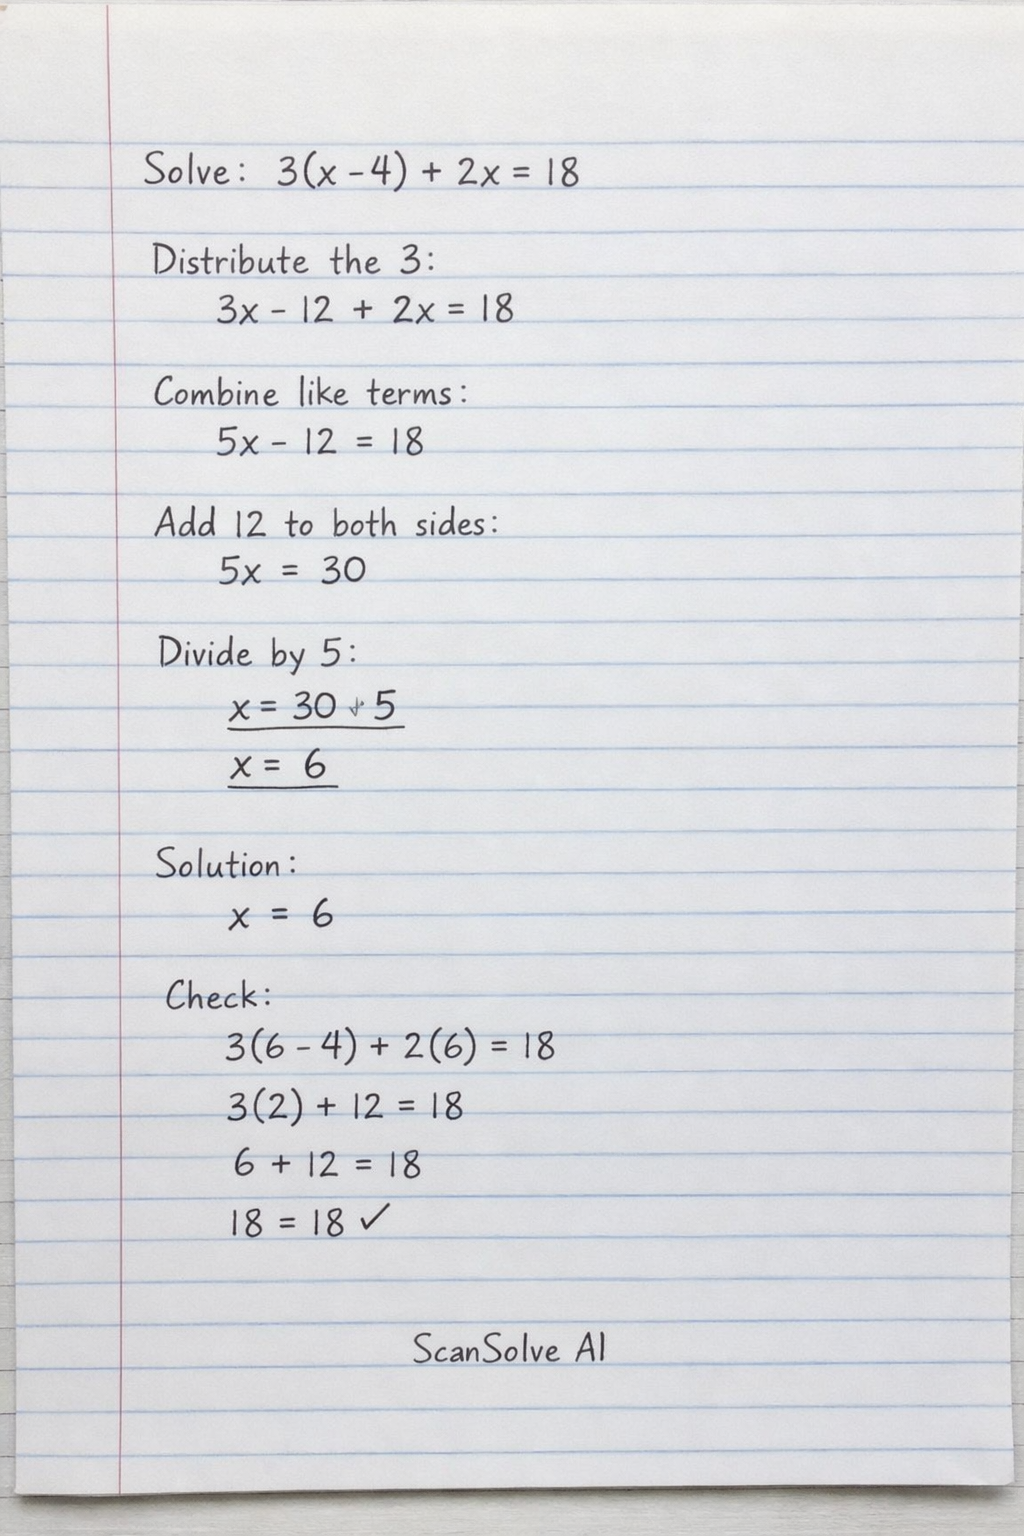 Solve: 3(x - 4) + 2x = 18
Distribute the 3:
3x - 12 + 2x = 18
Combine like terms:
5x - 12 = 18
Add 12 to both sides:
5x = 30
Divide by 5:
x = 30 5
x = 6
Solution:
x = 6
Check:
3(6 - 4) + 2(6) = 18
3(2) + 12 = 18
6 + 12 = 18
18 = 18 ✓
ScanSolve AI